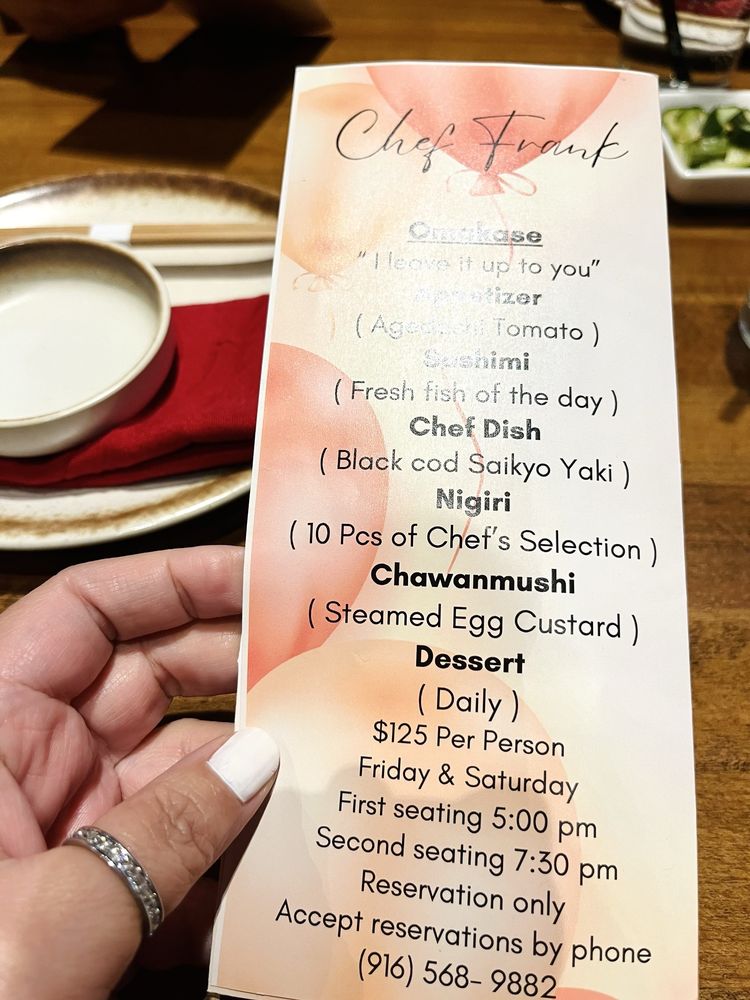 Chef Frank
Omakase
" I leave it up to you"
Appetizer
( Agedashi Tomato )
Sashimi
( Fresh fish of the day )
Chef Dish
( Black cod Saikyo Yaki )
Nigiri
( 10 Pcs of Chef's Selection )
Chawanmushi
( Steamed Egg Custard )
Dessert
( Daily )
$125 Per Person
Friday & Saturday
First seating 5:00 pm
Second seating 7:30 pm
Reservation only
Accept reservations by phone
(916) 568- 9882